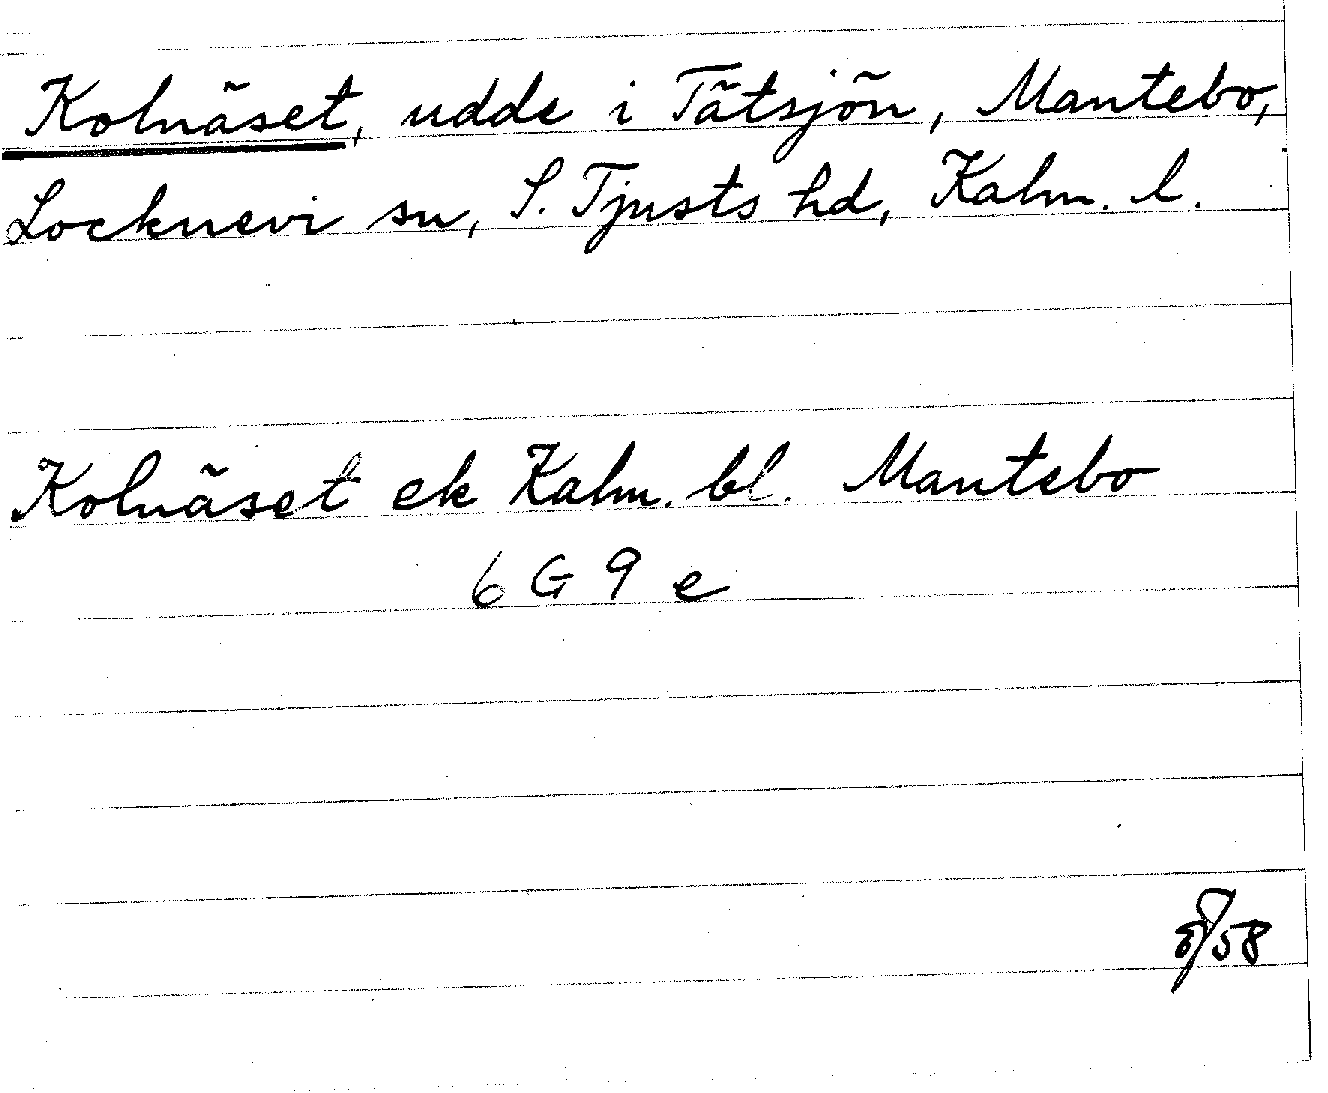 Kolnäset, udde i Tätsjön, Mantebo,
Locknevi sn, S. Tjusts hd, Kalm. l.
Kolnäset ek Kalm. bl. Mantebo
6 G 9 e